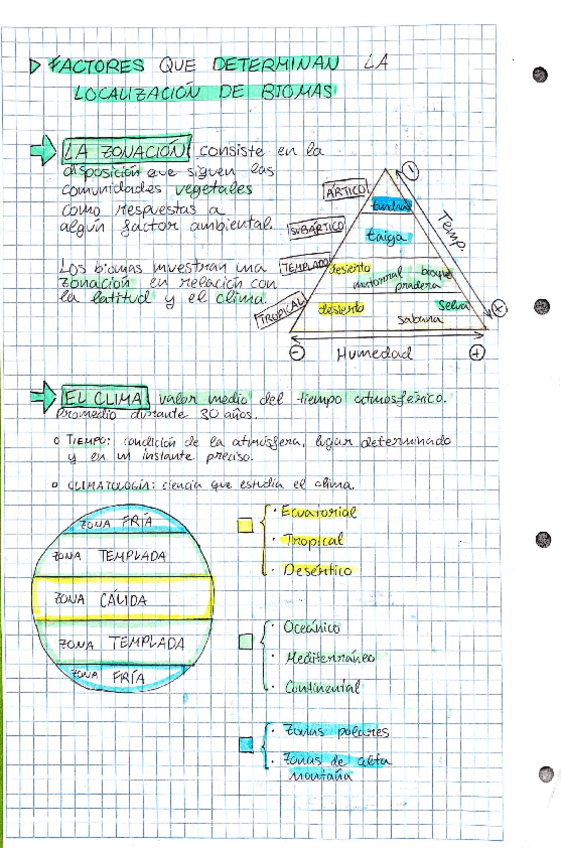 FACTORES QUE DETERMINAN LA
LOCALIZACIÓN DE BIOMAS
LA ZONACIÓN consiste en la
disposición que siguen las
comunidades vegetales
como respuestas a
algún factor ambiental.
Los biomas muestran una
zonación en relación con
la latitud y el clima.
ÁRTICO
tundra
SUBÁRTICO
taiga
TEMPLADO
desierto
matorral bosque
pradera
TROPICAL
desierto
selva
sabana
Temp.
-
+
-
+
Humedad
EL CLIMA valor medio del tiempo atmosférico.
Promedio durante 30 años.
TIEMPO: condición de la atmósfera, lugar determinado
y en un instante preciso.
CLIMATOLOGÍA: ciencia que estudia el clima.
ZONA FRÍA
ZONA TEMPLADA
ZONA CÁLIDA
ZONA TEMPLADA
ZONA FRÍA
· Ecuatorial
· Tropical
· Desértico
· Oceánico
· Mediterráneo
· Continental
· Zonas polares
· Zonas de alta
montaña